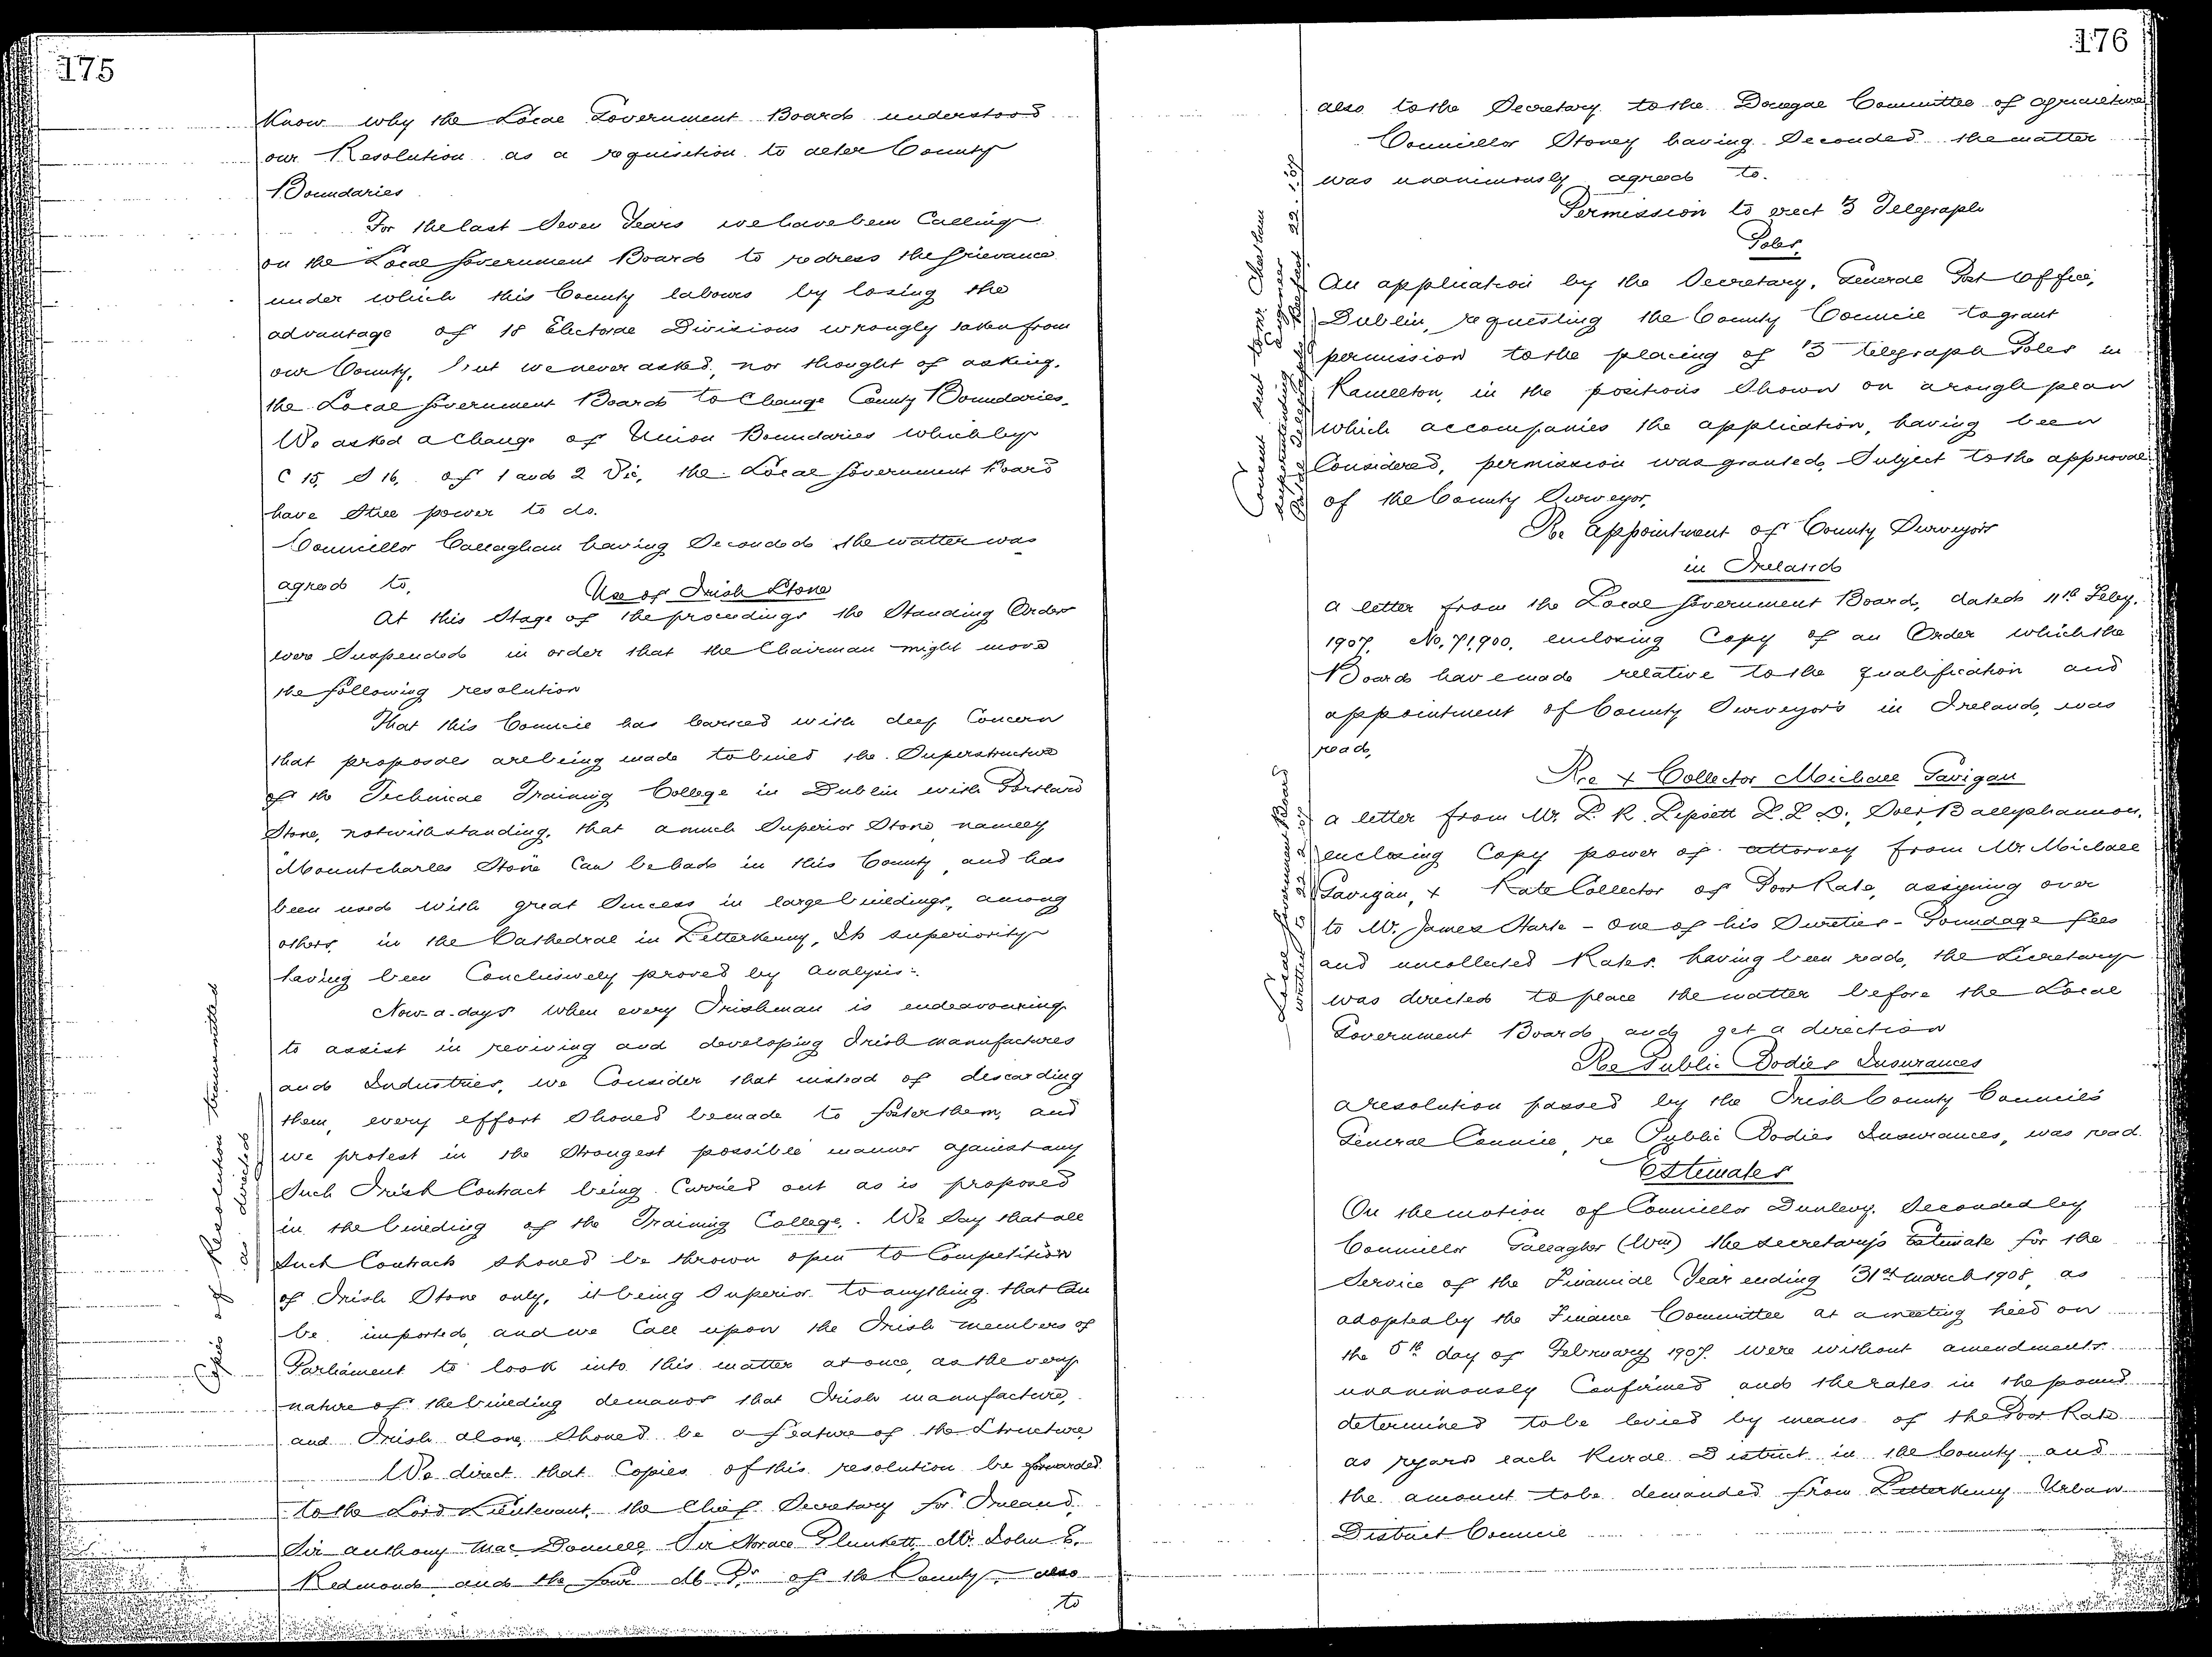 175
Know why the Local Government Board understood
our Resolution as a requisition to alter County
Boundaries
For the last Seven Years we have been Calling
on the Local Government Board to redress the Grievance
under which this County labours by losing the
advantage of 18 Electoral Divisions wrongly taken from
our County, but we never asked, nor thought of asking,
the Local Government Board to Change County Boundaries.
We asked a Change of Union Boundaries which by
C 15, S 16, of 1 and 2 Vic, the Local Government Board
have still power to do.
Councillor Callaghan having Seconded the matter was
agreed to,
Use of Irish Stone
At this Stage of the proceedings the Standing Orders
were Suspended in order that the Chairman might move
the following resolution
That this Council has learned with deep Concern
that proposals are being made to build the Superstructure
of the Technical Training College in Dublin with Portland
Stone, notwithstanding, that a much Superior Stone, namely
Mountcharles Stone Can be had in this County, and has
been used with great Success in large buildings, among
others, in the Cathedral in Letterkenny, Its superiority
having been Conclusively proved by analysis:-
Now-a-days when every Irishman is endeavouring
to assist in reviving and developing Irish manufactures
and Industries, we Consider that instead of discarding
them, every effort Should be made to foster them, and
we protest in the Strongest possible manner against any
Such Irish Contract being Carried out as is proposed
in the building of the Training College. We Say that all
Such Contracts should be thrown open to Competition
of Irish Stone only, it being Superior to anything that Can
be imported, and we Call upon the Irish members of
Parliament to look into this matter at once, as the very
nature of the building demands that Irish manufacture,
and Irish alone, Should be a feature of the Structure
We direct that Copies of this resolution be forwarded
to the Lord Lieutenant, the Chief Secretary for Ireland,
Sir Anthony Mac Donnell, Sir Horace Plunkett, Mr. John E.
Redmond and the four M Ps of the County, also
to
Copies of Resolution transmitted
as directed
176
also to the Secretary to the Donegal Committee of Agriculture
Councillor Stoney having Seconded the matter
was unanimously agreed to.
Permission to erect 3 Telegraph
Poles,
An application by the Secretary, General Post Office,
Dublin, requesting the County Council to grant
permission to the placing of 3 telegraph Poles in
Ramelton, in the positions Shown on a rough plan
which accompanies the application, having been
Considered, permission was granted, Subject to the approval
of the County Surveyor,
Re Appointment of County Surveyors
in Ireland
A letter from the Local Government Board, dated 11th Feby.
1907, No. 71,900, enclosing Copy of an Order which the
Board have made relative to the qualification and
appointment of County Surveyors in Ireland, was
read,
Re x Collector Michael Gavigan
A letter from Mr. L. R. Lipsett L.L.D., Solr, Ballyshannon,
enclosing Copy power of attorney from Mr. Michael
Gavigan, x Rate Collector of Poor Rate, assigning over
to Mr. James Harte - One of his Sureties - Poundage fees
and uncollected Rates having been read, the Secretary
was directed to place the matter before the Local
Government Board and get a direction
Re Public Bodies Insurances
A resolution passed by the Irish County Councils
General Council, re Public Bodies Insurances, was read
Estimates
On the motion of Councillor Dunlevy, Seconded by
Councillor Gallagher (Wm) the secretary's Estimate for the
Service of the Financial Year ending 31st March 1908, as
adopted by the Finance Committee at a meeting held on
the 5th day of February 1907, were without amendments
unanimously Confirmed and the rates in the pound
determined to be levied by means of the Poor Rate
as regard each Rural District in the County and
the amount to be demanded from Letterkenny Urban
District Council
Consent sent to Mr.
Superintending Engineer
22.
Local Government Board
written to 22.2.07